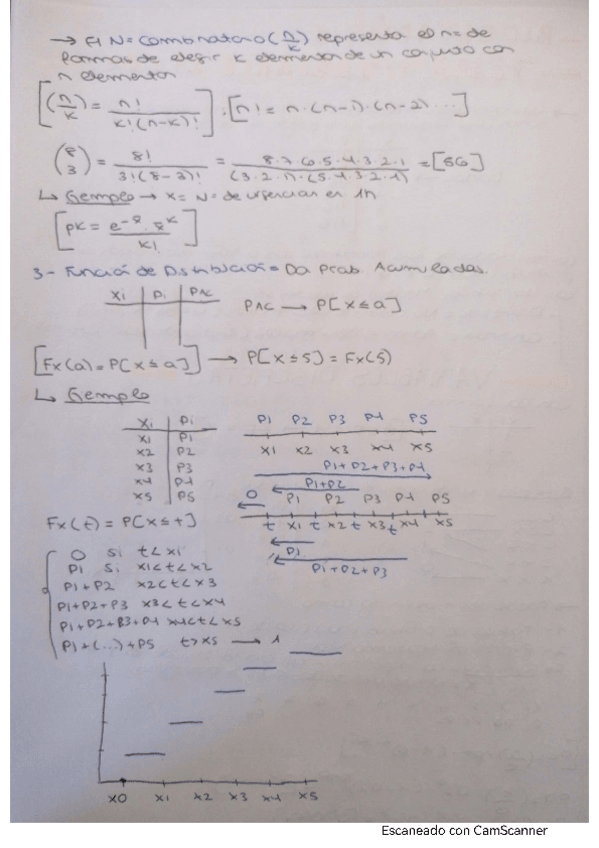 → El Nº Combinatorio (n/k) representa el nº de
formas de elegir k elementos de un conjunto con
n elementos
[(n/k) = n! / k!(n-k)!], [n! = n·(n-1)·(n-2)...]
(8 3) = 8! / 3!(8-3)! = 8·7·6·5·4·3·2·1 / (3·2·1)·(5·4·3·2·1) = [56]
↳ Ejemplo → X = Nº de urgencias en 1h
[PK = e^-8 · 8^k / k!]
3- Función de Distribución = Da Prob. Acumuladas.
Xi | Pi | PAC
PAC → P[X ≤ a]
[Fx(a) = P[X ≤ a]] → P[X ≤ 5] = Fx(5)
↳ Ejemplo
Xi | Pi
X1 | P1
X2 | P2
X3 | P3
X4 | P4
X5 | P5
P1 P2 P3 P4 P5
X1 X2 X3 X4 X5
P1+P2+P3+P4
P1+P2
0 P1 P2 P3 P4 P5
t X1 t X2 t X3 t X4 X5
P1
P1+P2+P3
Fx(t) = P[X ≤ t]
0 si t < X1
P1 si X1 < t < X2
P1+P2 X2 < t < X3
P1+P2+P3 X3 < t < X4
P1+P2+P3+P4 X4 < t < X5
P1+(...)+P5 t > X5 → 1
X0 X1 X2 X3 X4 X5
Escaneado con CamScanner